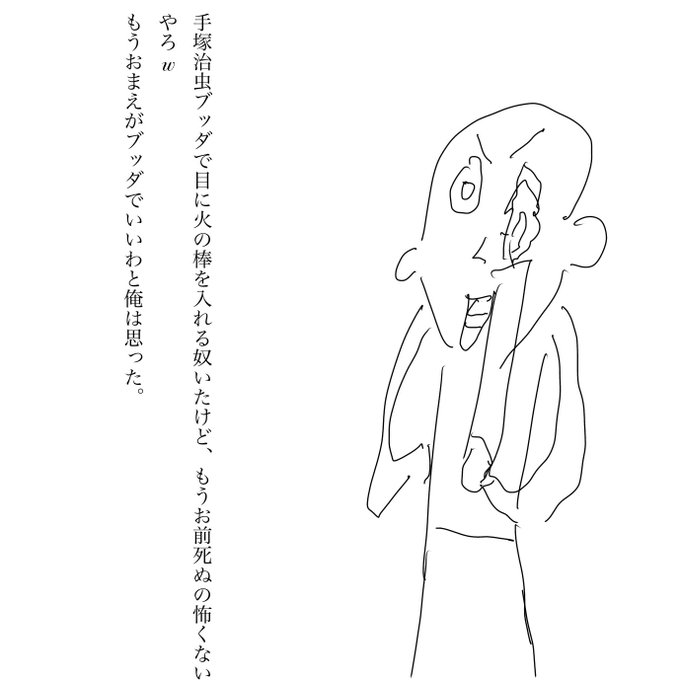 手塚治虫ブッダで目に火の棒を入れる奴いたけど、もうお前死ぬの怖くない
やろw
もうおまえがブッダでいいわと俺は思った。